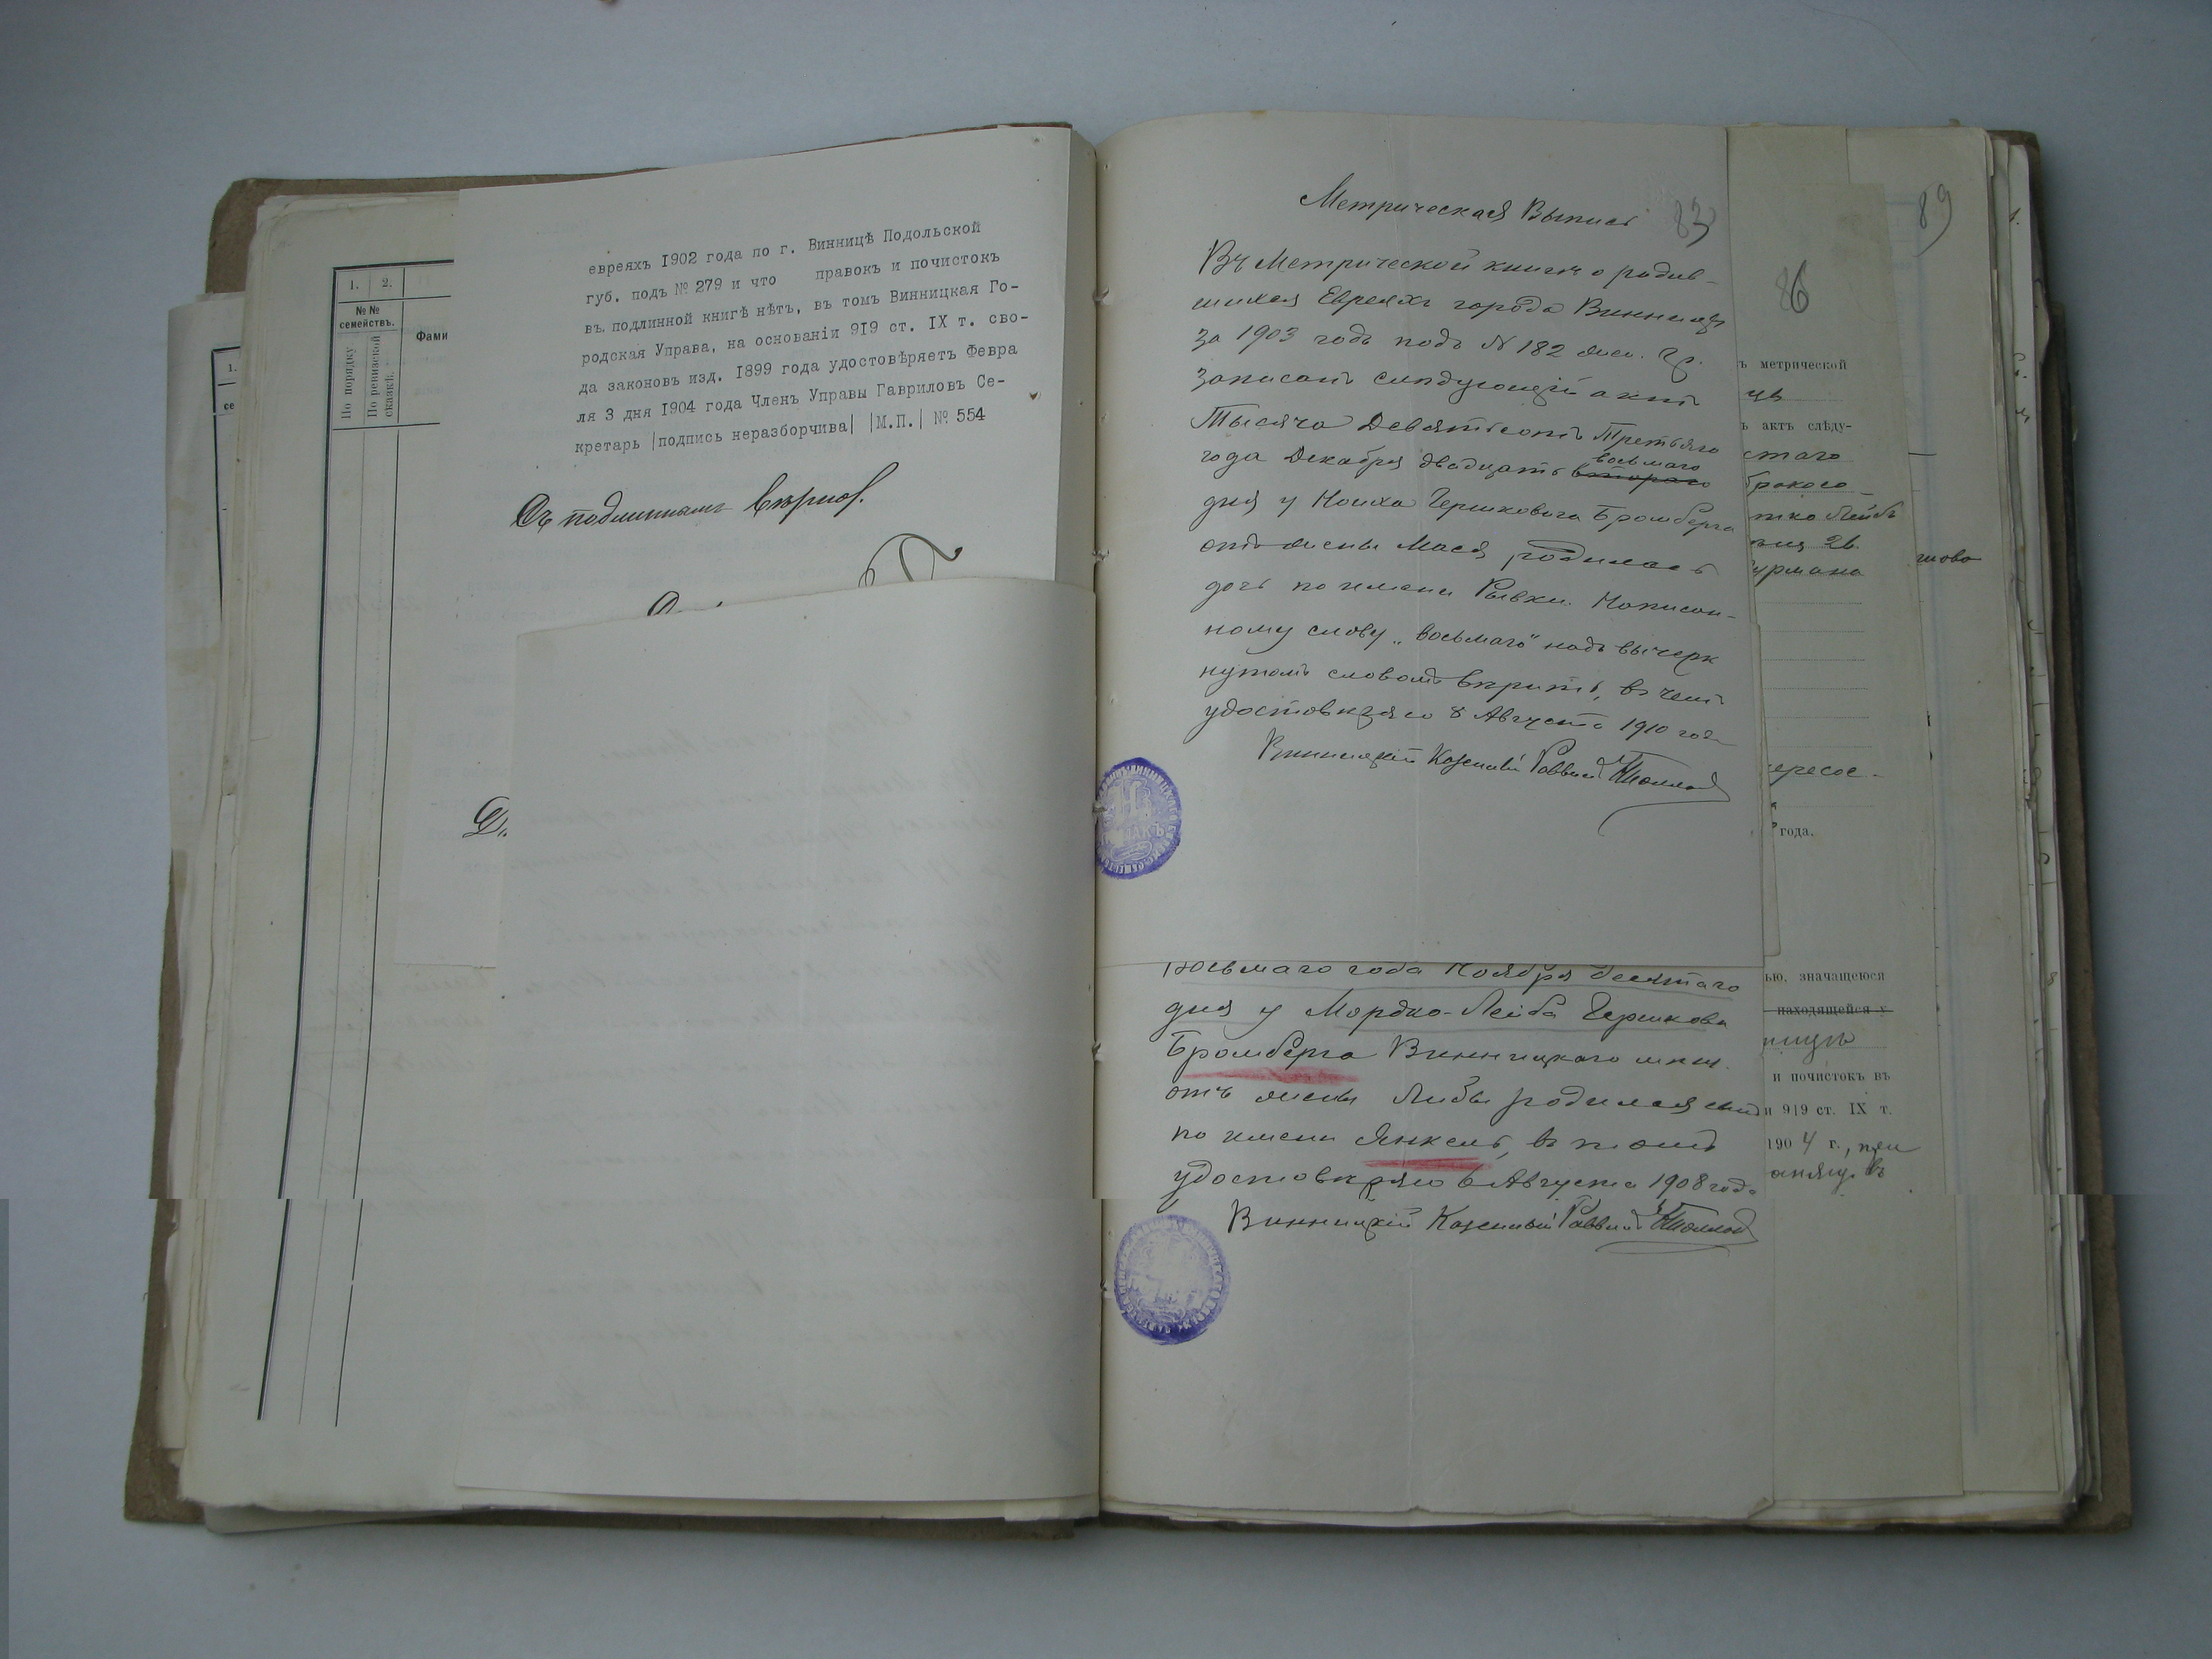 евреяхъ 1902 года по г. Винницѣ Подольской
губ. подъ № 279 и что правокъ и почистокъ
въ подлинной книгѣ нѣтъ, въ томъ Винницкая Го-
родская Управа, на основаніи 919 ст. IX т. сво-
да законовъ изд. 1899 года удостовѣряетъ Февра
ля 3 дня 1904 года Членъ Управы Гавриловъ Се-
кретарь |подпись неразборчива| |М.П.| № 554
Съ подлиннымъ вѣрно.
1. 2.
№№
семействъ.
По порядку
По ревизской
сказкѣ.
Фами
1.
се
Метрическая Выпись
83
Въ Метрической книгѣ о родив-
шихся Евреяхъ города Винницы
за 1903 годъ подъ N 182 жен. гр.
записанъ слѣдующій актъ
Тысяча Девятьсотъ Третьяго
восьмаго
года Декабря двадцать втораго
дня у Гершковича Бромберга
отъ жены Мася родилась
дочь по имени Рывка. Написан-
ному слову „восьмаго" надъ вычерк
нутымъ словомъ вѣрить, въ чемъ
удостовѣряю 8 Августа 1910 года
Винницкій Казенный Раввинъ
восьмаго года Ноября десятаго
дня у Мордко-Лейба Гершкова
Бромберга Винницкаго мѣщ.
отъ жены Либы родился сынъ
по имени Янкель, въ томъ
удостовѣряю 6 Августа 1908 года
Винницкій Казенный Раввинъ
86
ъ метрической
цѣ
ъ актъ слѣду-
стаго
тко Лейбъ
26
урмана
года.
ью, значащеюся
находящейся у
и почистокъ въ
и 919 ст. IX т.
1904 г., при
въ
89